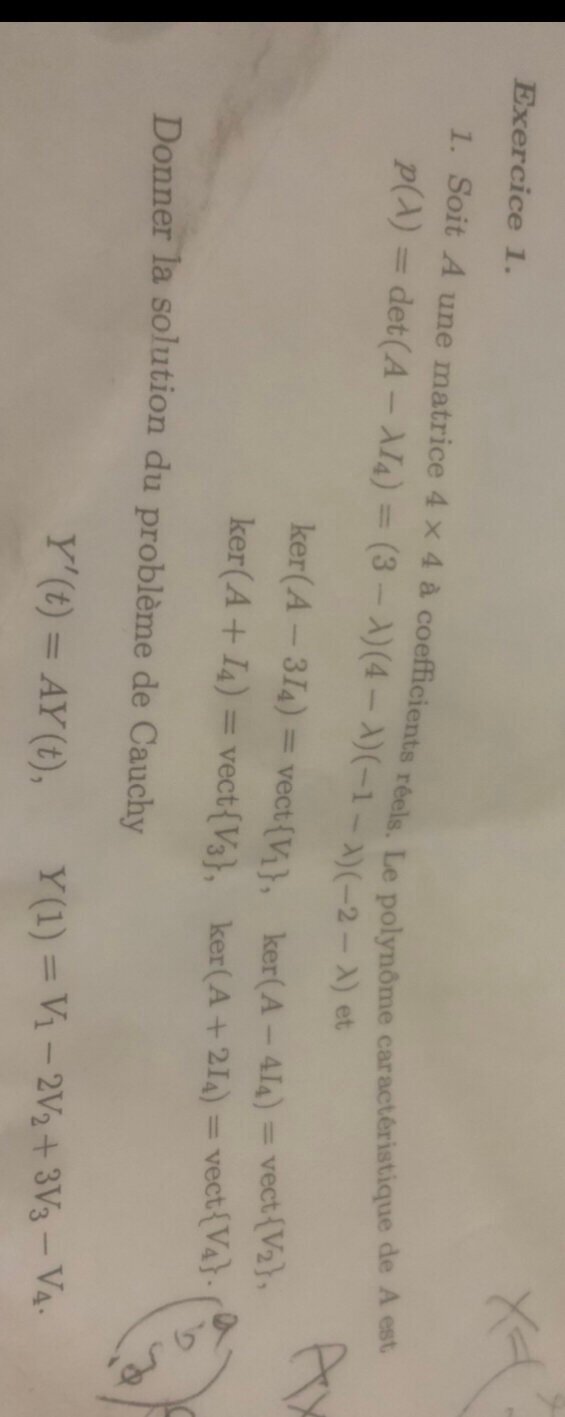 Exercice 1.
1. Soit A une matrice 4 × 4 à coefficients réels. Le polynôme caractéristique de A est
p(λ) = det(A − λI₄) = (3 − λ)(4 − λ)(−1 − λ)(−2 − λ) et
ker(A − 3I₄) = vect{V₁}, ker(A − 4I₄) = vect{V₂},
ker(A + I₄) = vect{V₃}, ker(A + 2I₄) = vect{V₄}.
Donner la solution du problème de Cauchy
Y′(t) = AY(t), Y(1) = V₁ − 2V₂ + 3V₃ − V₄.